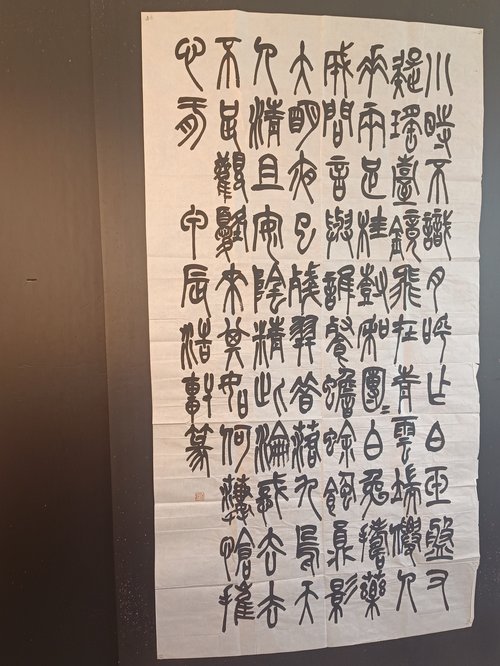 小時不識月呼作白玉盤又
疑瑤臺鏡飛在青雲端僊人
垂兩足桂樹和團團白兔搗藥
成問言與誰餐蟾蜍蝕圓影
大明夜已殘羿昔落九烏天
人清且安陰精此淪惑去去
不足觀憂來其如何悽愴摧
心肝 甲辰浩篆